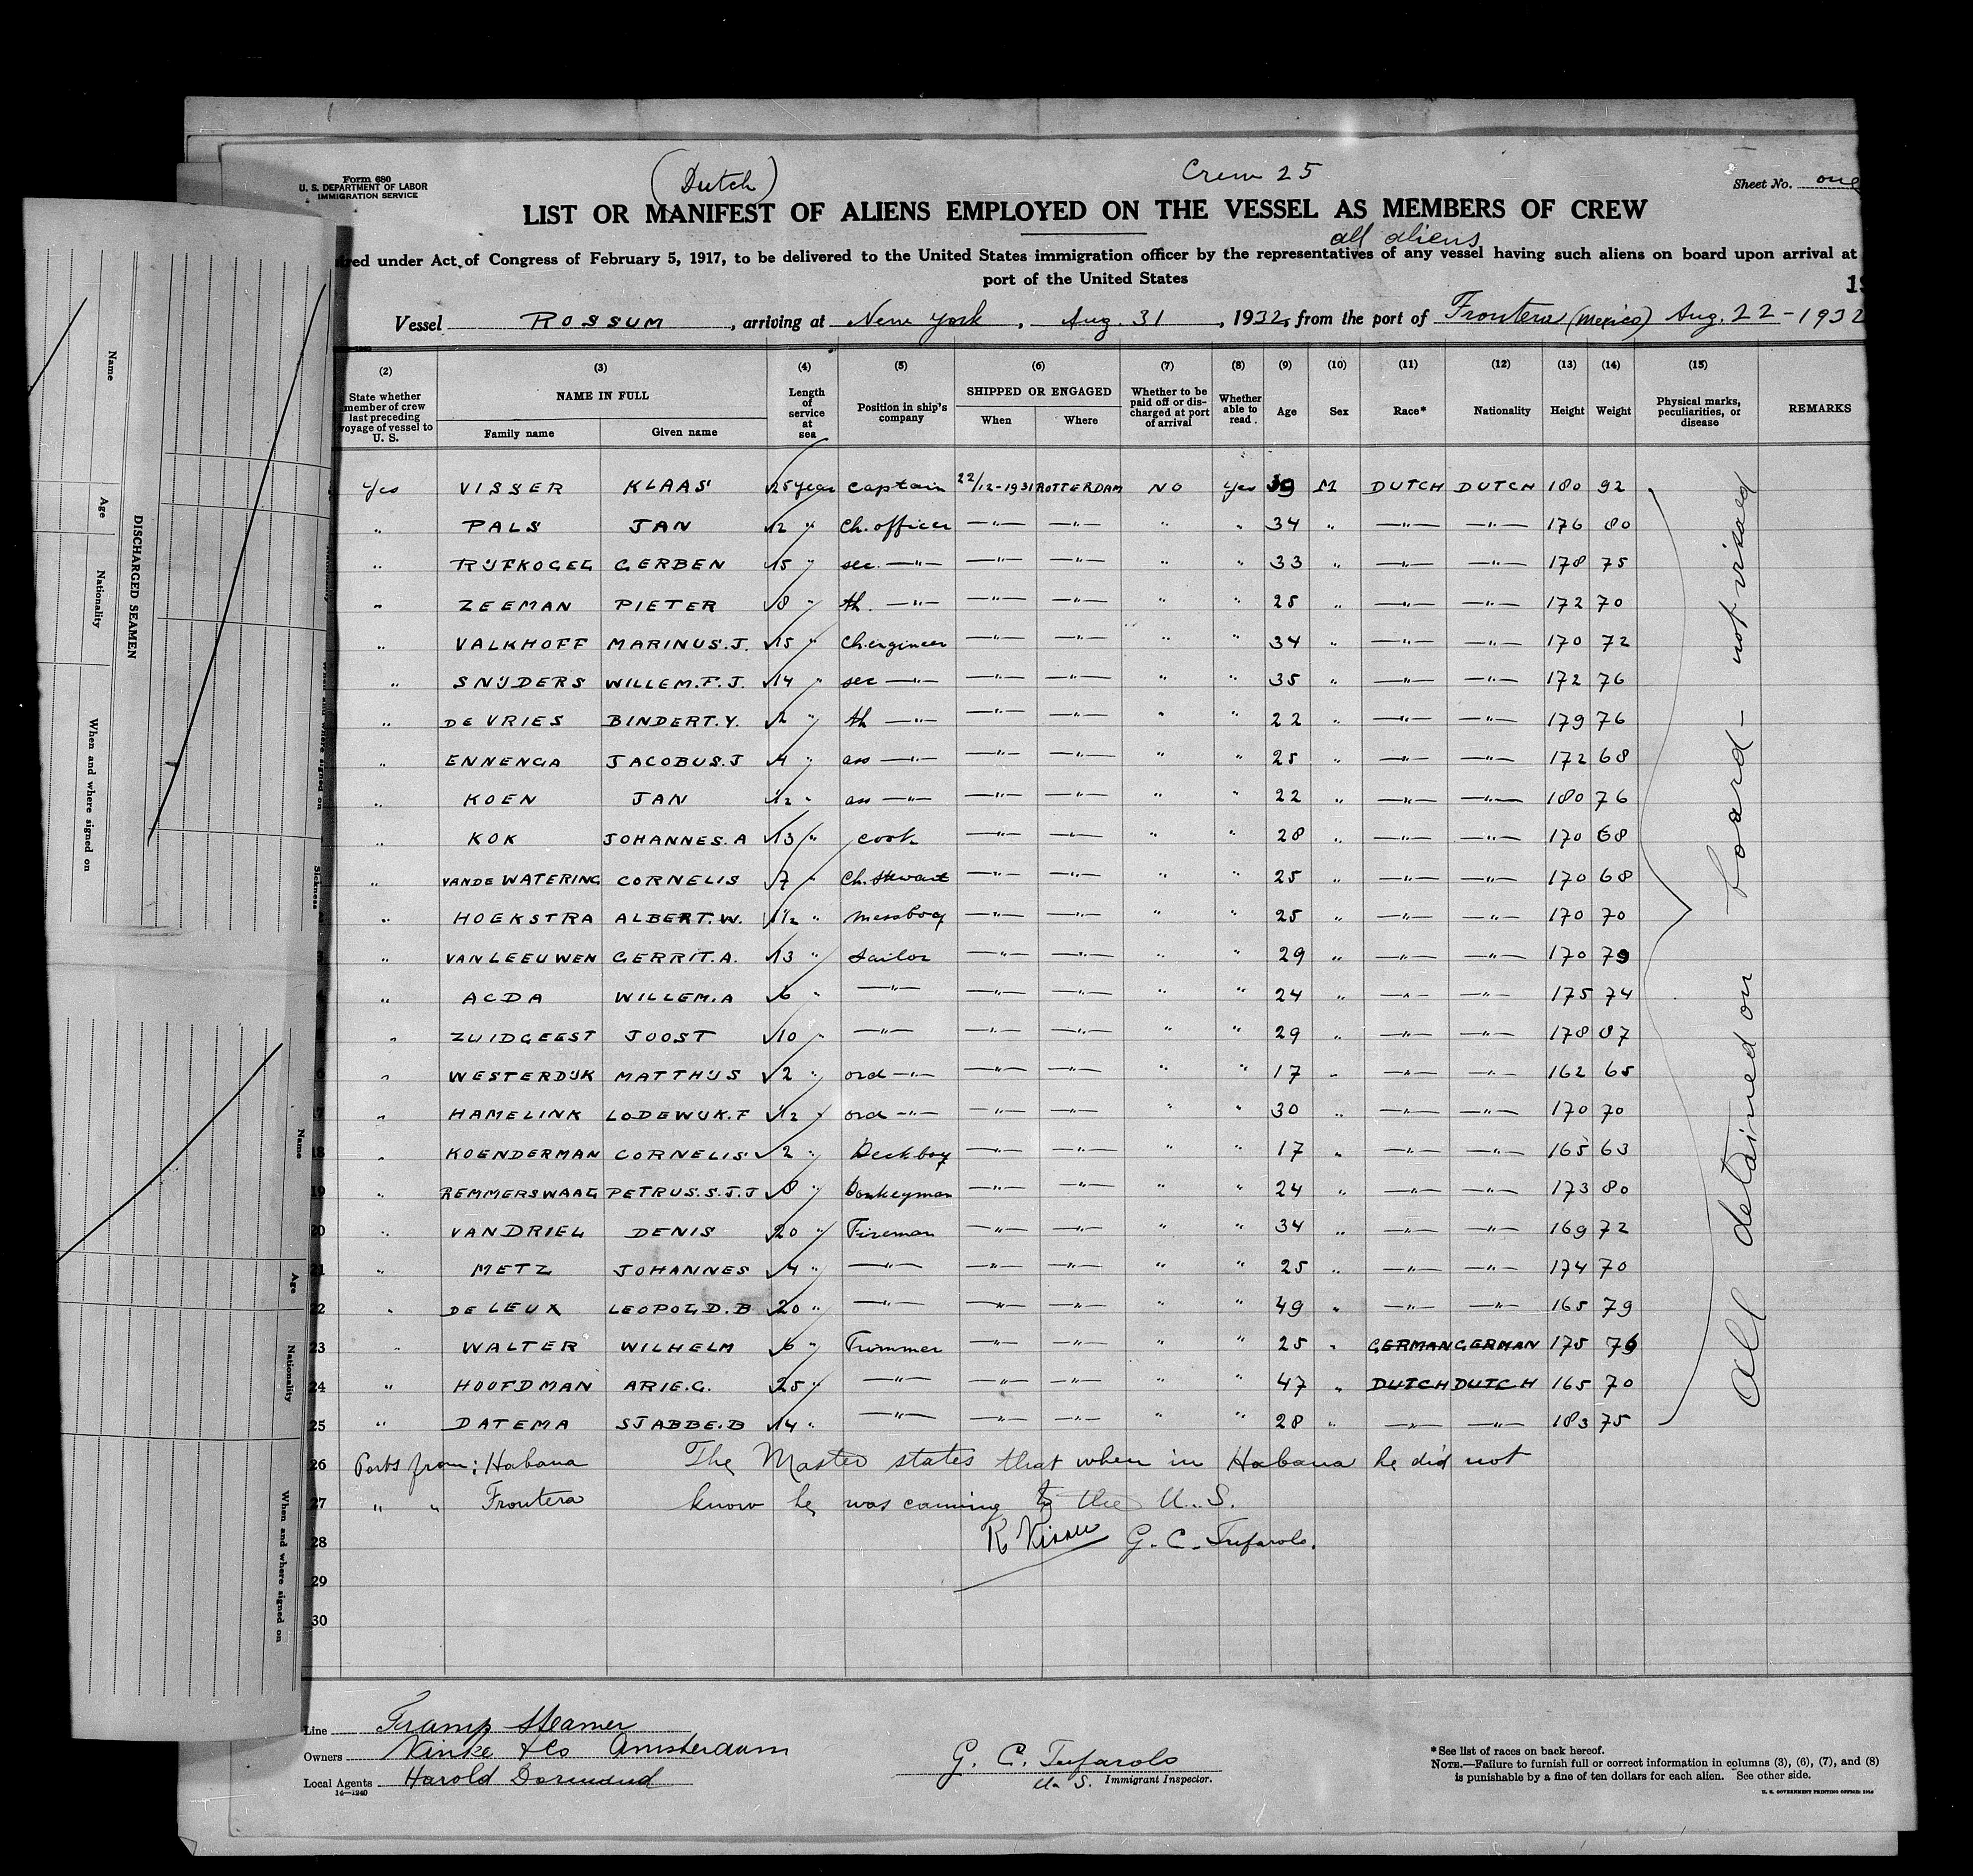 Form 680
U. S. DEPARTMENT OF LABOR
IMMIGRATION SERVICE
(Dutch)
Crew 25
Sheet No. one
LIST OR MANIFEST OF ALIENS EMPLOYED ON THE VESSEL AS MEMBERS OF CREW
all aliens
red under Act of Congress of February 5, 1917, to be delivered to the United States immigration officer by the representatives of any vessel having such aliens on board upon arrival at
port of the United States
Vessel ROSSUM, arriving at New York, Aug. 31, 1932, from the port of Frontera (Mexico) Aug. 22-1932
(2) (3) (4) (5) (6) (7) (8) (9) (10) (11) (12) (13) (14) (15)
State whether member of crew last preceding voyage of vessel to U. S. NAME IN FULL Family name Given name Length of service at sea Position in ship's company SHIPPED OR ENGAGED When Where Whether to be paid off or discharged at port of arrival Whether able to read. Age Sex Race* Nationality Height Weight Physical marks, peculiarities, or disease REMARKS
Yes VISSER KLAAS 25 year Captain 22/12-1931 ROTTERDAM NO Yes 39 M DUTCH DUTCH 180 92
" PALS JAN 12 " Ch. officer —"— —"— " " 34 " —"— —"— 176 80
" RIJFKOGEL GERBEN 15 " sec. —"— —"— —"— " " 33 " —"— —"— 178 75
" ZEEMAN PIETER 8 " th. —"— —"— —"— " " 25 " —"— —"— 172 70
" VALKHOFF MARINUS.J. 15 " Ch.engineer —"— —"— " " 34 " —"— —"— 170 72
" SNIJDERS WILLEM.F.J. 14 " sec —"— —"— —"— " " 35 " —"— —"— 172 76
" DE VRIES BINDERT.Y. 2 " th —"— —"— —"— " " 22 " —"— —"— 179 76
" ENNENGA JACOBUS.J 4 " ass —"— —"— —"— " " 25 " —"— —"— 172 68
" KOEN JAN 1/2 " ass —"— —"— —"— " " 22 " —"— —"— 180 76
" KOK JOHANNES.A 13 " cook —"— —"— " " 28 " —"— —"— 170 68
" VANDE WATERING CORNELIS 7 " Ch. Stewart —"— —"— " " 25 " —"— —"— 170 68
" HOEKSTRA ALBERT.W. 1 1/2 " messboy —"— —"— " " 25 " —"— —"— 170 70
" VAN LEEUWEN GERRIT.A. 13 " sailor —"— —"— " " 29 " —"— —"— 170 79
" ACDA WILLEM.A 6 " —"— —"— —"— " " 24 " —"— —"— 175 74
" ZUIDGEEST JOOST 10 " —"— —"— —"— " " 29 " —"— —"— 178 87
" WESTERDIJK MATTHIJS 2 " ord —"— —"— —"— " " 17 " —"— —"— 162 65
17 " HAMELINK LODEWIJK.F 12 " ord —"— —"— —"— " " 30 " —"— —"— 170 70
18 " KOENDERMAN CORNELIS 2 " Deckboy —"— —"— " " 17 " —"— —"— 165 63
19 " REMMERSWAAL PETRUS.S.J.J 8 " Donkeyman —"— —"— " " 24 " —"— —"— 173 80
20 " VAN DRIEL DENIS 20 " Fireman —"— —"— " " 34 " —"— —"— 169 72
21 " METZ JOHANNES 4 " —"— —"— —"— " " 25 " —"— —"— 174 70
22 " DE LEUX LEOPOLD.B 20 " —"— —"— —"— " " 49 " —"— —"— 165 79
23 " WALTER WILHELM 6 " Trimmer —"— —"— " " 25 " GERMAN GERMAN 175 76
24 " HOOFDMAN ARIE.G. 25 " —"— —"— —"— " " 47 " DUTCH DUTCH 165 70
25 " DATEMA SJABBE.B 14 " —"— —"— —"— " " 28 " —"— —"— 183 75
All detained on board - not visaed
26 Ports from: Habana The Master states that when in Habana he did not
27 " " Frontera know he was coming to the U.S.
28 G. C. Tufarolo.
29
30
Line Tramp Steamer
Owners Vinke & Co Amsterdam
Local Agents Harold
16—1240
G. C. Tufarolo
U. S. Immigrant Inspector.
*See list of races on back hereof.
NOTE.—Failure to furnish full or correct information in columns (3), (6), (7), and (8)
is punishable by a fine of ten dollars for each alien. See other side.
Name
Age
Nationality
When and where signed on
DISCHARGED SEAMEN
Sickness
Name
Age
Nationality
When and where signed on